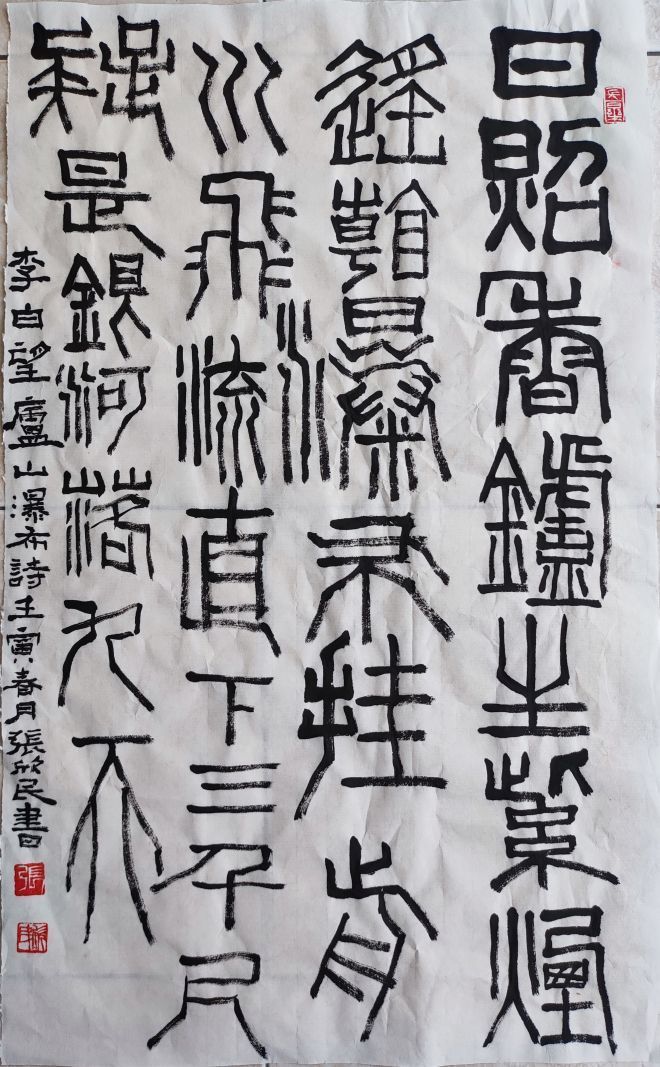 日照香鑪生紫煙
遙看瀑布挂前
川飛流直下三千尺
疑是銀河落九天
李白望廬山瀑布詩壬寅春月張欣民書
張